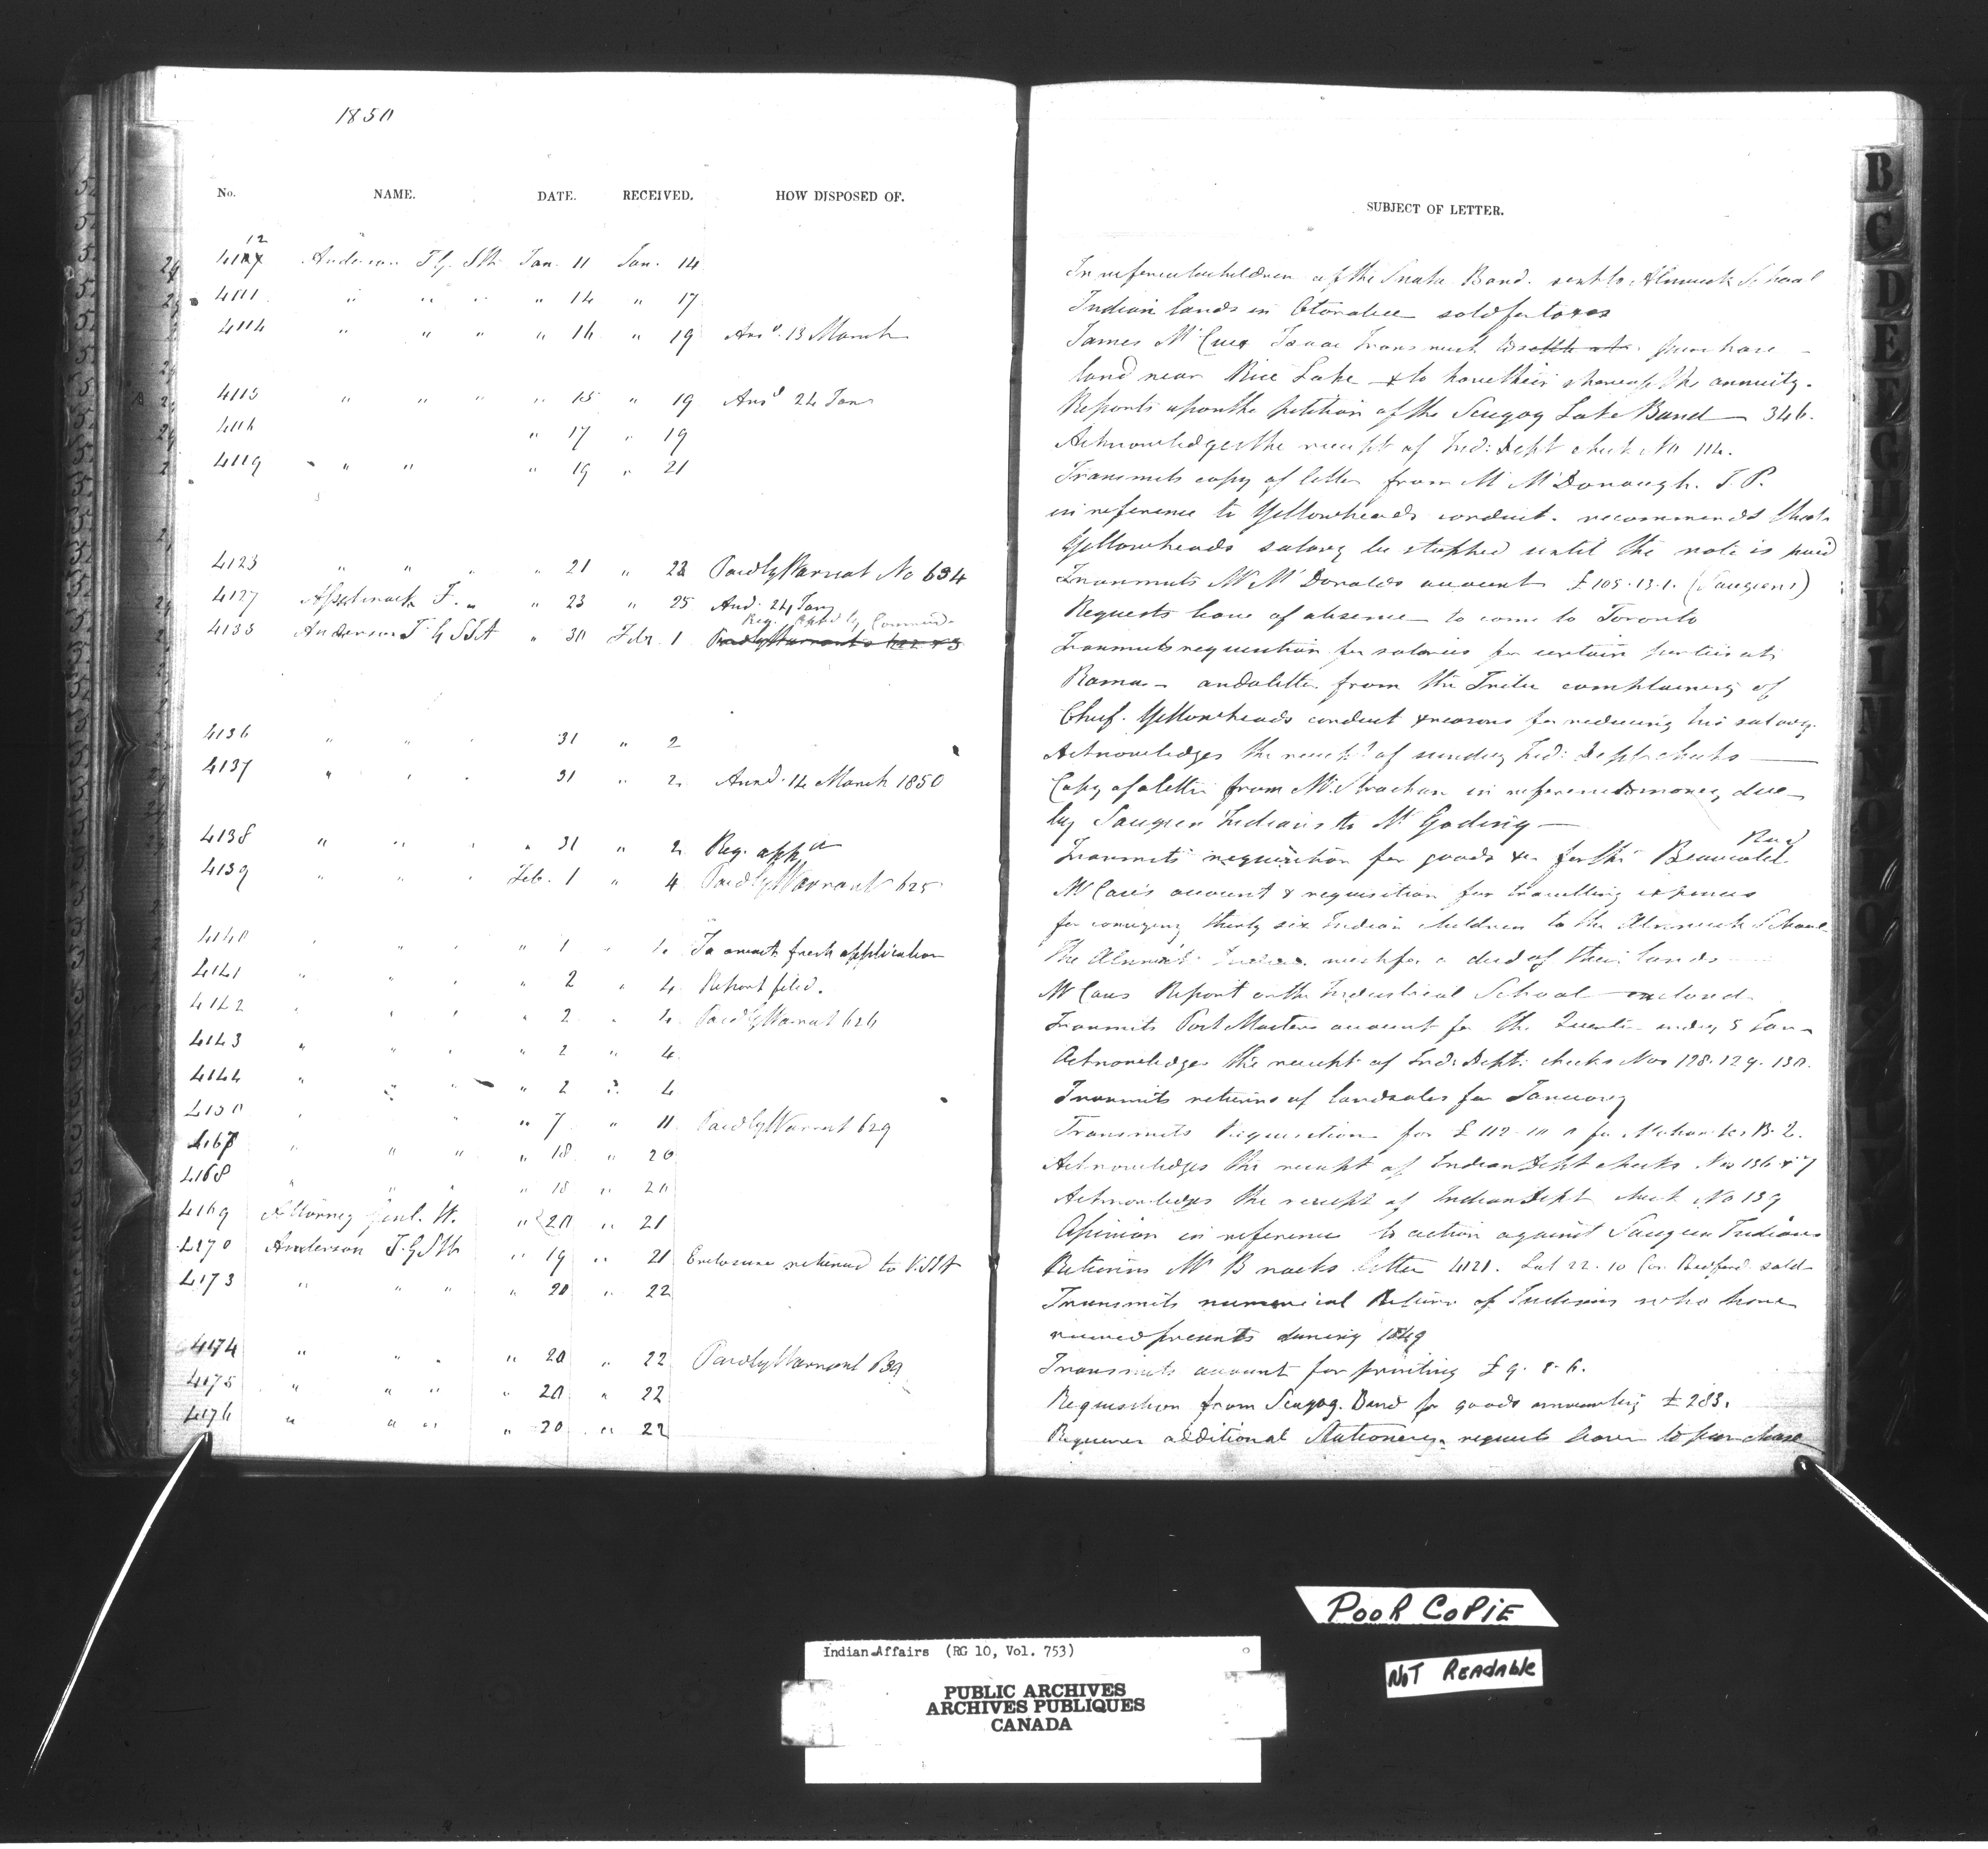 1850
No. NAME. DATE. RECEIVED. HOW DISPOSED OF.
12
Anderson T G. Jan. 11 Jan. 14
4111 " " " " 14 " 17
4114 " " " " 14 " 19 Ansd. 13 March
4115 " " " " 15 " 19 Ansd 24 Jan
4116 " 17 " 19
4119 " " " 19 " 21
4123 " " " " 21 " 22 Paid by Warrant No 634
4127 F. " " 23 " 25 Ansd. 24 Jany
Req. by Command
4135 Anderson T G SIA " 30 Feby. 1 Paid by Warrants 622 & 3
4136 " " " 31 " 2
4137 " " " 31 " 2 Answd. 14 March 1850
4138 " " " " 31 " 2 Req. appd
4139 " " " Feb. 1 " 4 Paid by Warrant 625
4140 " " " " 1 " 4 To await fresh application
4141 " " " " 2 " 4 Report filed.
4142 " " " " 2 " 4 Paid by Warrant 626
4143 " " " " 2 " 4
4144 " " " " 2 " 4
4150 " " " 7 " 11 Paid by Warrant 629
4167 " " " " 18 " 20
4168 " " " " 18 " 20
4169 Attorney Genl. W. " 20 " 21
4170 Anderson T. G " 19 " 21 Enclosure returned to
4173 " " " " 20 " 22
4174 " " " " 20 " 22 Paid by Warrant
4175 " " " " 20 " 22
4176 " " " " 20 " 22
SUBJECT OF LETTER.
In reference to children of the Snake Band. sent to Alnwick School
Indian lands in Otonabee sold for taxes
James McCue & Isaac purchase
land near Rice Lake & to have their share of the annuity.
Reports upon the petition of the Scugog Lake Band 346.
Acknowledges the receipt of Ind: Dept check No 114.
Transmits copy of letter from Mr McDonough. J. P.
in reference to Yellowheads conduct. recommends that
Yellowheads salary be stopped until the note is paid
Transmits Mr McDonalds account £105.13.1. (Saugeen)
Requests leave of absence to come to Toronto
Transmits requisition for salaries for certain parties at
Rama - and a letter from the Tribe complaining of
Chief. Yellowheads conduct & reasons for reducing his salary.
Acknowledges the receipt of sundry Ind: Dept. checks
Copy of a letter from Mr. Strachan in reference to money due
by Saugeen Indians to Mr Goding
Transmits requisition for goods &c for the Beausoliel
Band
Mr Case's account & requisition for travelling expences
for conveying thirty six Indian children to the Alnwick School
The Alnwick Indians wish for a deed of their lands
Mr Cases Report on the Industrial School enclosed
Transmits Post Masters account for the Quarter ending 5 Jan
Acknowledges the receipt of Ind: Dept: checks Nos 128. 129. 130.
Transmits returns of land sales for January
Transmits Requisition for £112.10.0 for Mohawks B. Q.
Acknowledges the receipt of Indian Dept checks Nos 136 & 7
Acknowledges the receipt of Indian Dept check No 139
Opinion in reference to action against Saugeen Indians
Returns Mr letter 4121. Lot 22. 10 Con. Bedford sold
Transmits numerical Return of Indians who have
received presents during 1849
Transmits account for printing £9. 8. 6.
Requisition from Scugog. Band for goods amounting £283.
Requires additional Stationery. requests leave to purchase
B
C
D
E
F
G
H
I
K
POOR COPIE
NOT READABLE
Indian Affairs (RG 10, Vol. 753)
PUBLIC ARCHIVES
ARCHIVES PUBLIQUES
CANADA